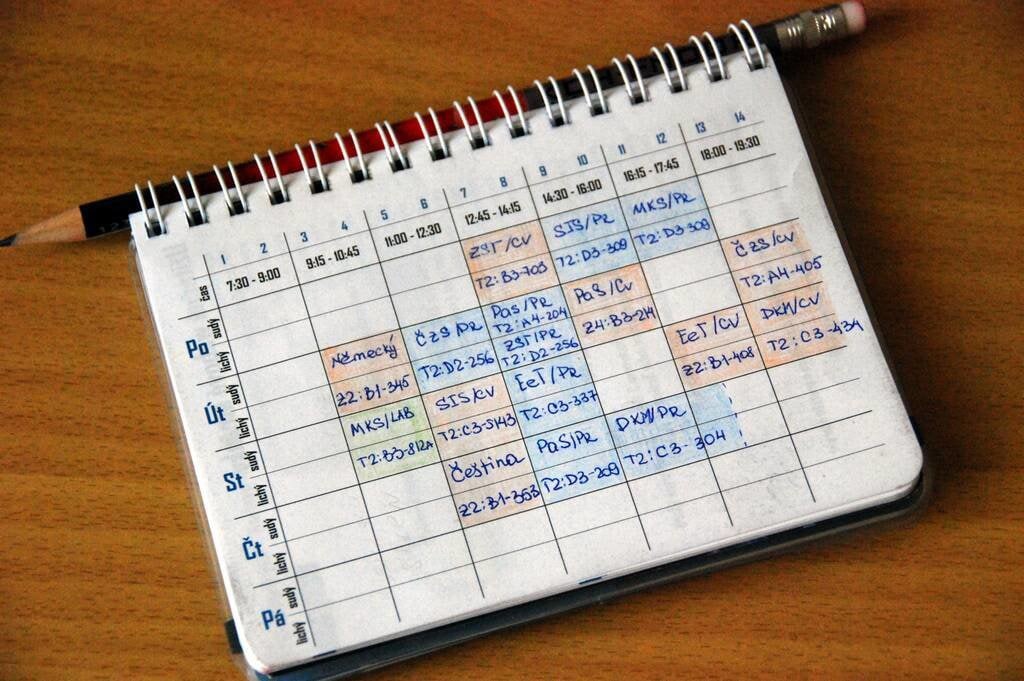 1 2 3 4 5 6 7 8 9 10 11 12 13 14
čas 7:30 - 9:00 9:15 - 10:45 11:00 - 12:30 12:45 - 14:15 14:30 - 16:00 16:15 - 17:45 18:00 - 19:30
Po
sudý ZST/CV SIS/PR MKS/PR
lichý T2:B3-703 T2:D3-309 T2:D3-309
Út
sudý Německý ČZS/PR PaS/PR T2:A4-204 PaS/CV ČZS/CV
lichý Z2:B1-345 T2:D2-256 ZST/PR T2:D2-256 Z4:B3-214 T2:A4-405
St
sudý MKS/LAB SIS/CV EeT/PR EeT/CV DKM/CV
lichý T2:B3-812A T2:C3-S143 T2:C3-337 Z2:B1-408 T2:C3-434
Čt
sudý Čeština PaS/PR DKM/PR
lichý Z2:B1-363 T2:D3-209 T2:C3-304
Pá
sudý
lichý